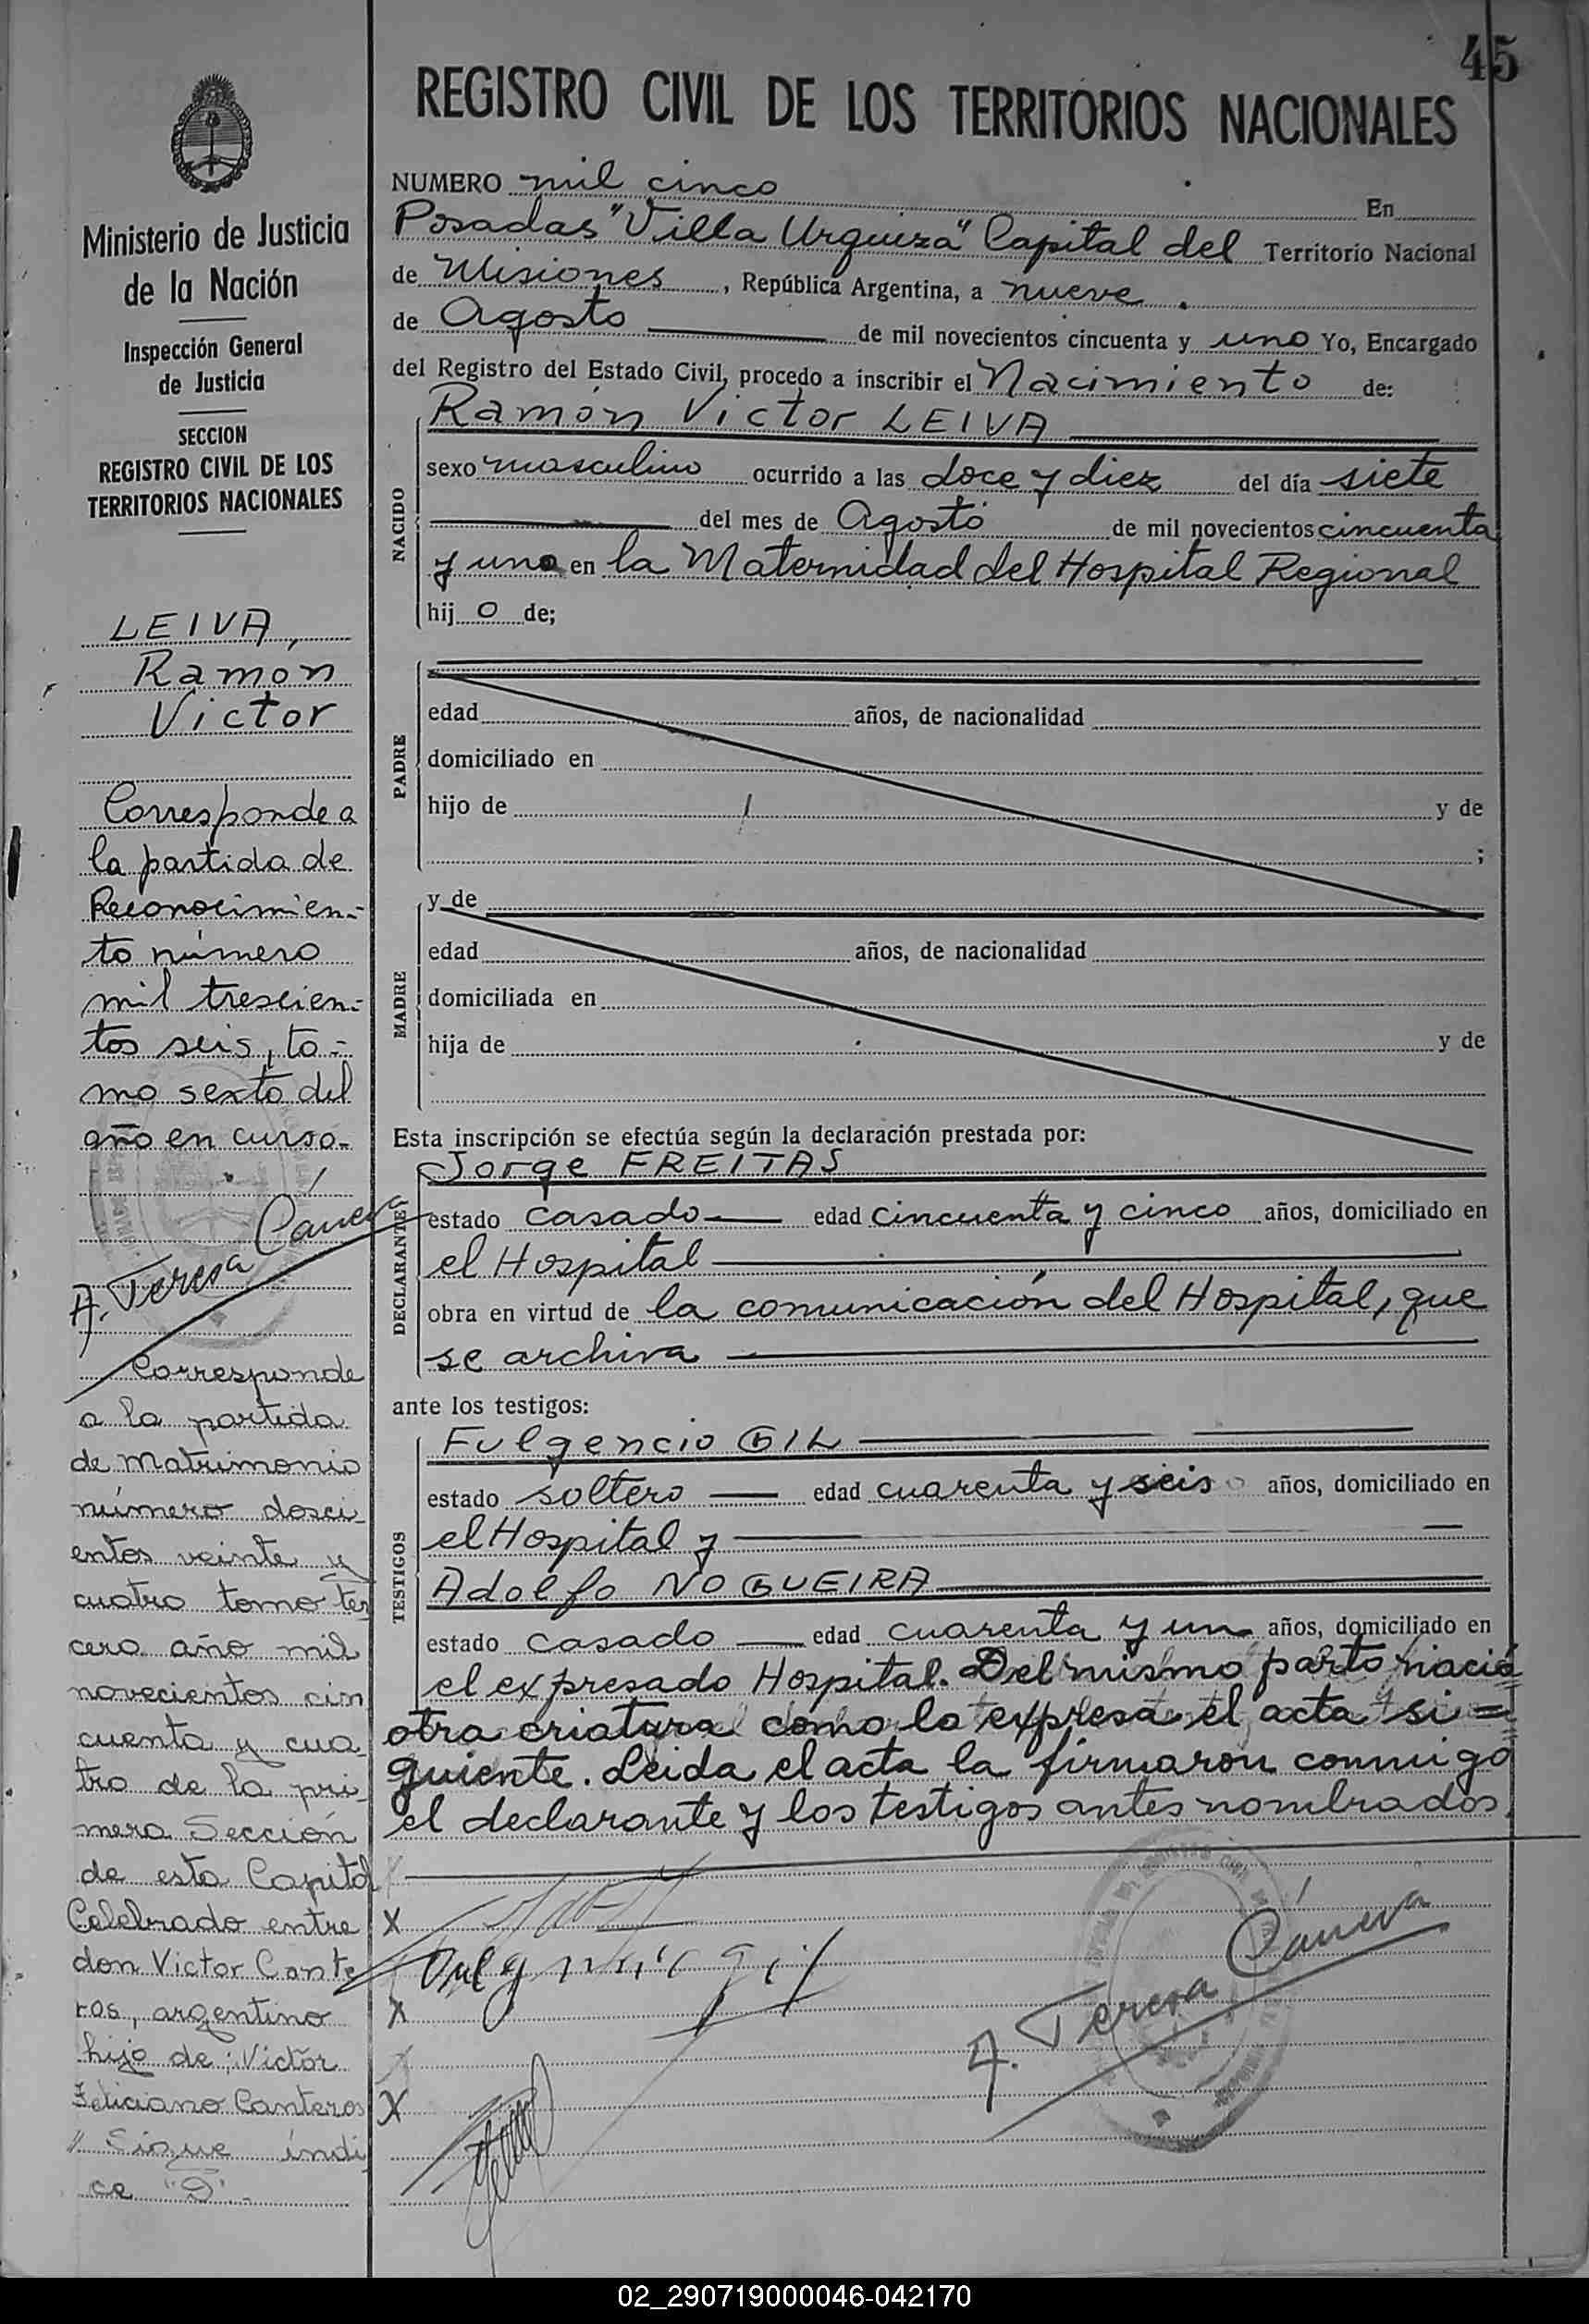 45
REGISTRO CIVIL DE LOS TERRITORIOS NACIONALES
Ministerio de Justicia
de la Nación
Inspección General
de Justicia
SECCION
REGISTRO CIVIL DE LOS
TERRITORIOS NACIONALES
LEIVA,
Ramón
Victor
Corresponde a
la partida de
Reconocimien-
to número
mil trescien-
tos seis, to-
mo sexto del
año en curso.
A. Teresa Cáneva
Corresponde
a la partida
de Matrimonio
número dosci
entos veinte y
cuatro tomo ter
cero año mil
novecientos cin
cuenta y cua
tro de la pri
mera Sección
de esta Capital
Celebrado entre
don Victor Cante
ros, argentino
hijo de: Victor
Feliciano Canteros
" Sigue indi
ce
NUMERO mil cinco En
Posadas "Villa Urquiza" Capital del Territorio Nacional
de Misiones, República Argentina, a nueve.
de Agosto de mil novecientos cincuenta y uno Yo, Encargado
del Registro del Estado Civil, procedo a inscribir el Nacimiento de:
NACIDO
Ramón Victor LEIVA
sexo masculino ocurrido a las doce y diez del día siete
del mes de Agosto de mil novecientos cincuenta
y uno en la Maternidad del Hospital Regional
hij o de;
PADRE
edad años, de nacionalidad
domiciliado en
hijo de y de
;
MADRE
y de
edad años, de nacionalidad
domiciliada en
hija de y de
Esta inscripción se efectúa según la declaración prestada por:
DECLARANTE
Jorge FREITAS
estado casado edad cincuenta y cinco años, domiciliado en
el Hospital
obra en virtud de la comunicación del Hospital, que
se archiva
ante los testigos:
TESTIGOS
Fulgencio GIL
estado soltero edad cuarenta y seis años, domiciliado en
el Hospital y
Adolfo NOGUEIRA
estado casado edad cuarenta y un años, domiciliado en
el expresado Hospital. Del mismo parto nació
otra criatura como lo expresa el acta si=
guiente. Leida el acta la firmaron conmigo
el declarante y los testigos antes nombrados.
X
X
X
A. Teresa Cáneva
02_290719000046-042170